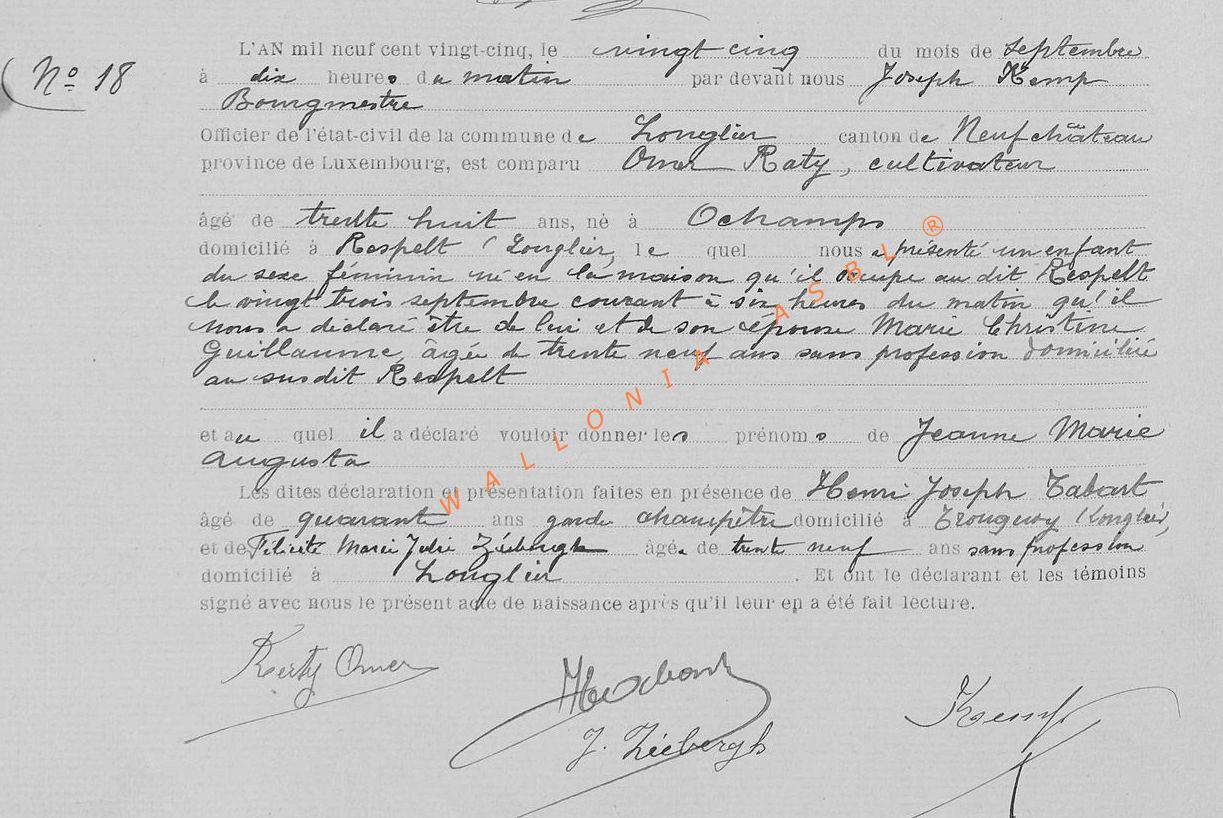 N° 18
L'AN mil neuf cent vingt-cinq, le vingt cinq du mois de septembre
à dix heures du matin par devant nous Joseph Kemp
Bourgmestre
Officier de l'état-civil de la commune de Longlier canton de Neufchâteau
province de Luxembourg, est comparu Omer Raty, cultivateur
âgé de trente huit ans, né à Ochamps
domicilié à Respelt (Longlier, le quel nous a présenté un enfant
du sexe féminin né en la maison qu'il occupe au dit Respelt
le vingt trois septembre courant à six heures du matin qu'il
nous a déclaré être de lui et de son épouse Marie Christine
Guillaume, âgée de trente neuf ans sans profession domiciliée
au susdit Respelt
et au quel il a déclaré vouloir donner les prénoms de Jeanne Marie
Augusta
Les dites déclaration et présentation faites en présence de Henri Joseph Tabart
âgé de quarante ans garde champêtre domicilié à Tronquoy (Longlier),
et de Félicité Marie Julie Zéebergh âgée de trente neuf ans sans profession
domicilié à Longlier. Et ont le déclarant et les témoins
signé avec nous le présent acte de naissance après qu'il leur en a été fait lecture.
WALLONIA ASBL ®
Raty Omer
J. Zéebergh
Kemp